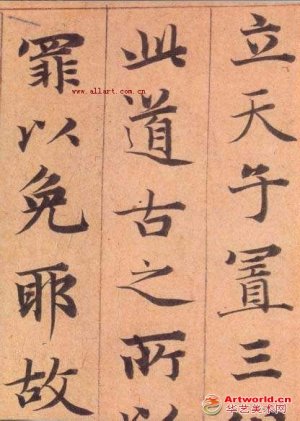 立天子置三
此道古之所以
罪以免耶故
www.allart.com.cn
Artworld.cn
华艺美术网